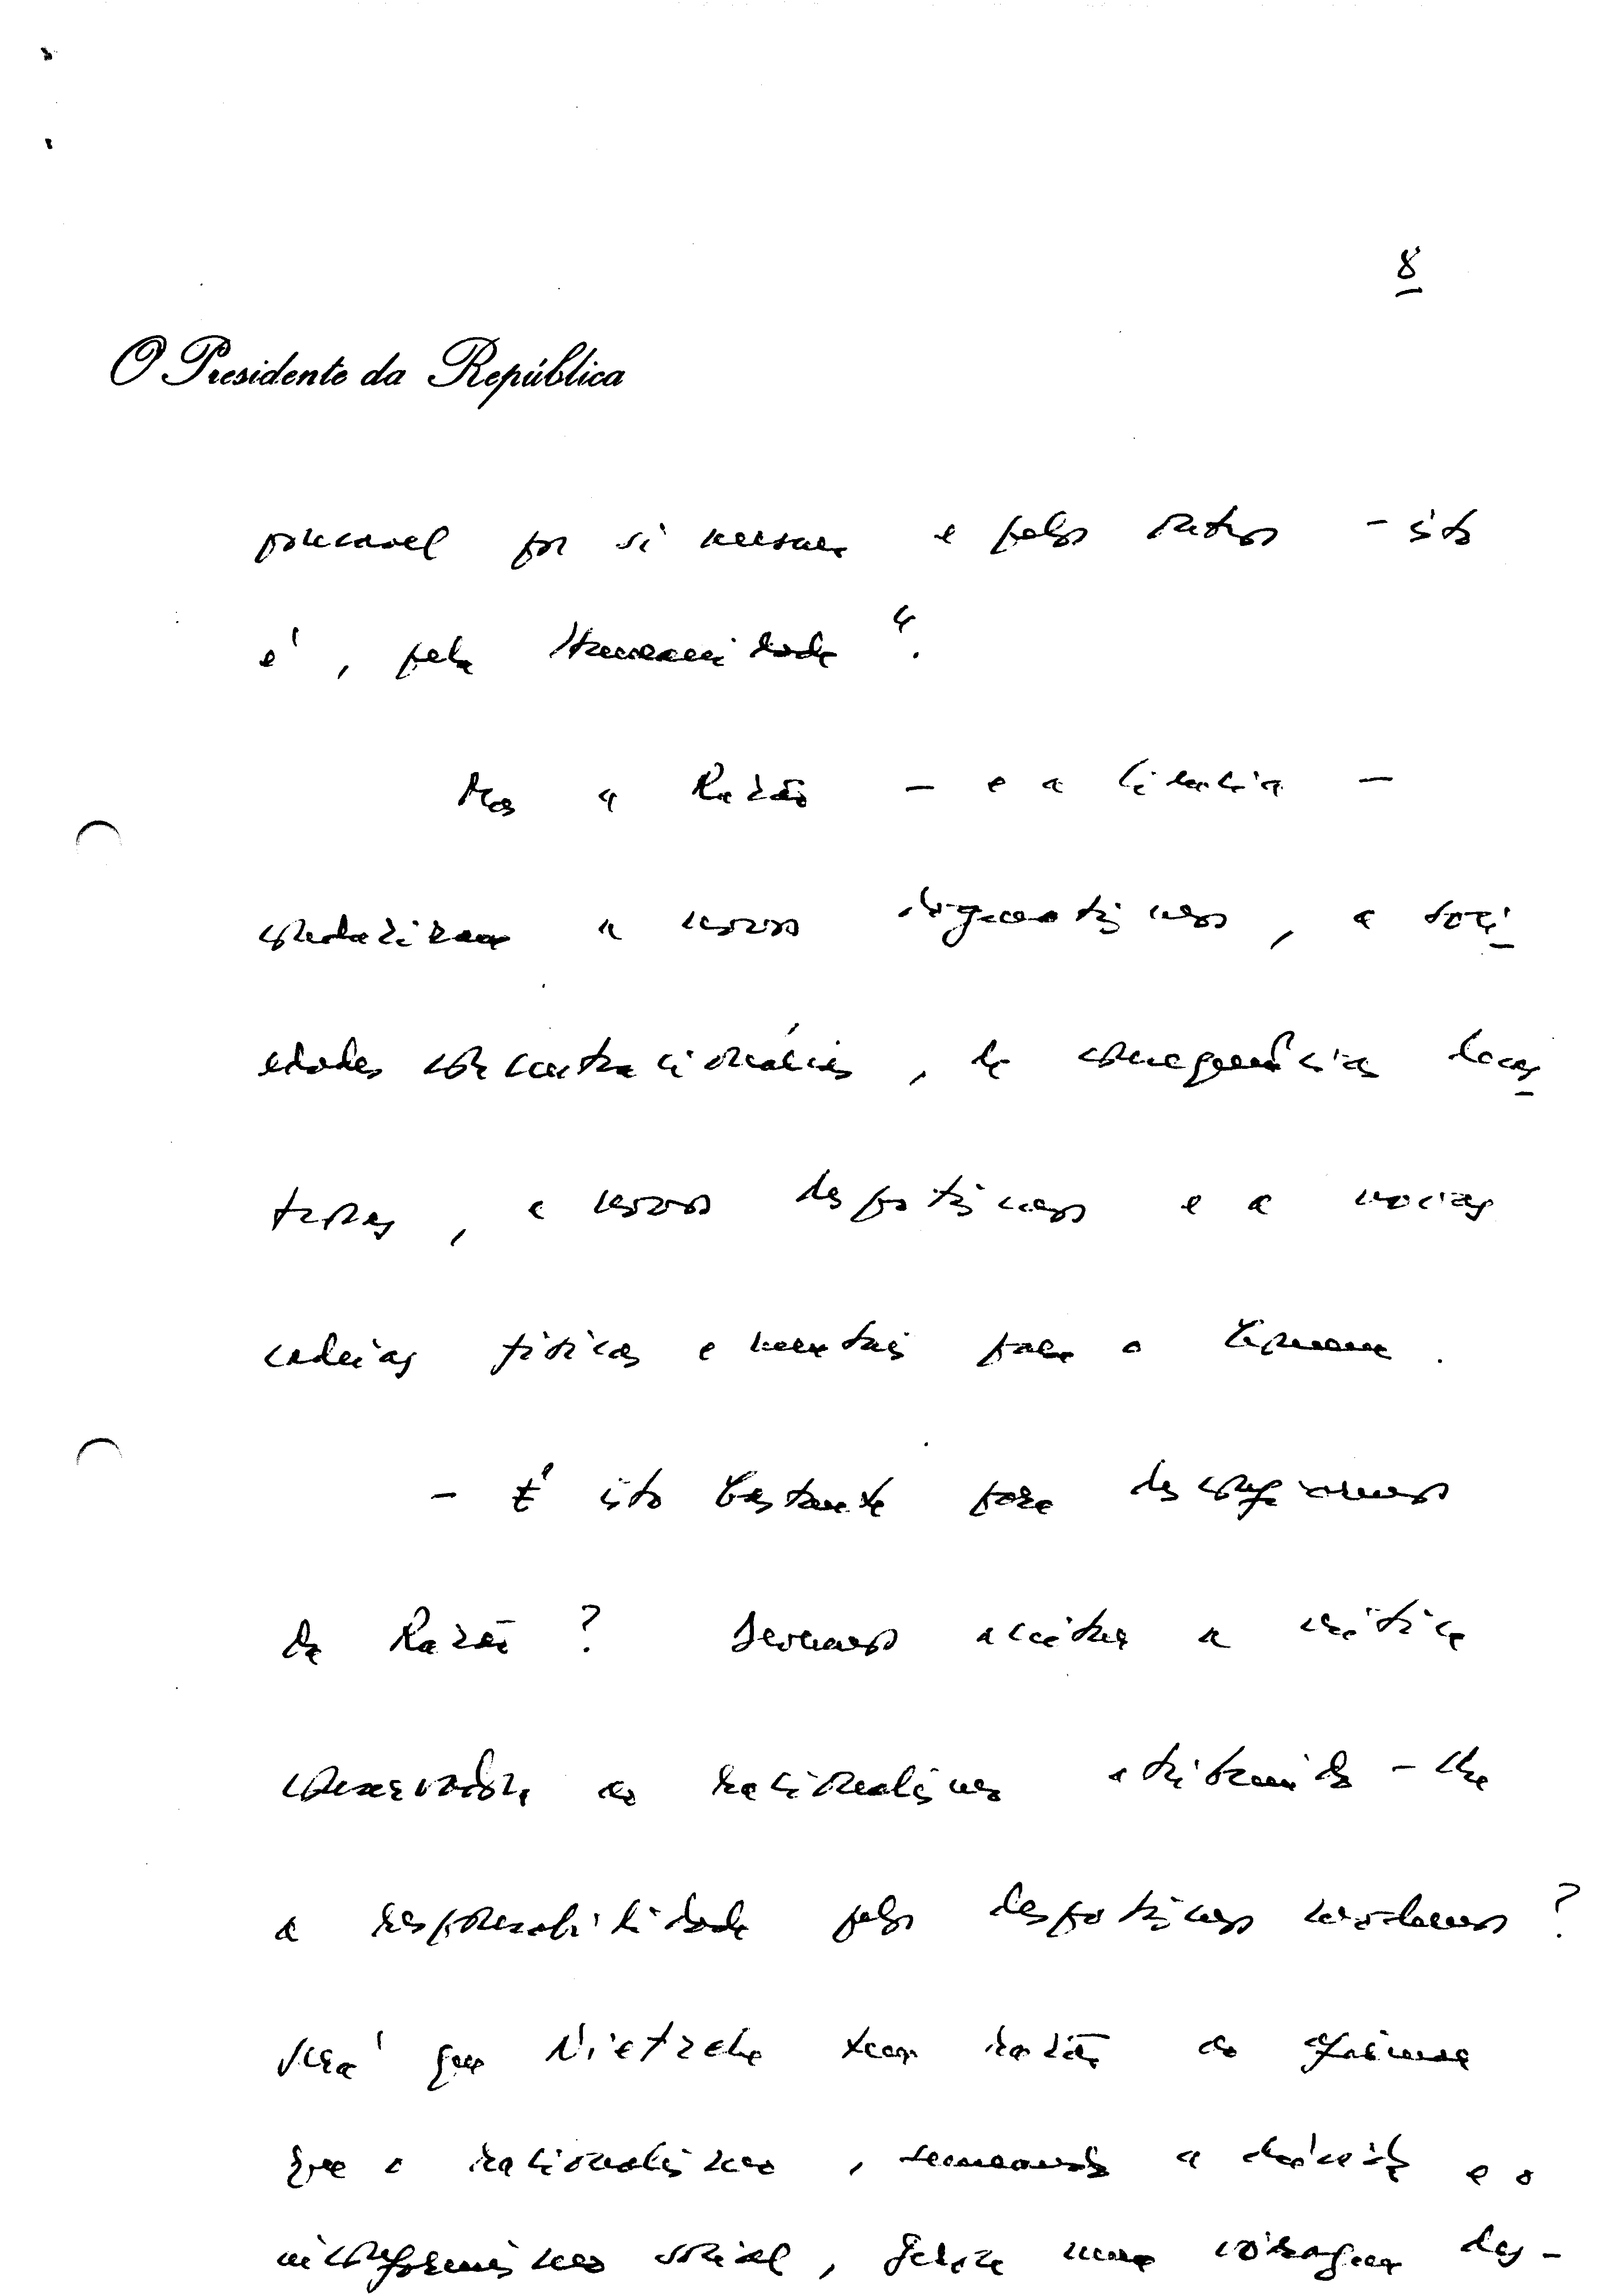 8
O Presidente da República
ponsavel por si mesmo e pelos outros - isto
é, pela Humanidade".
Mas a Razão - e a Ciência -
conduziram a novos dogmatismos, a soci
edades concentracionárias, de consequências desas
trosas, a novos despotismos e a novas
cadeias físicas e mentais para o Homem.
- É isto bastante para desconfiarmos
da Razão? Devemos aceitar a crítica
conservadora ao racionalismo atribuindo-lhe
a responsabilidade pelos despotismos modernos?
Será que Nietzche tem razão ao afirmar
que o racionalismo, semeando a dúvida e o
inconformismo social, gerou uma voragem des-